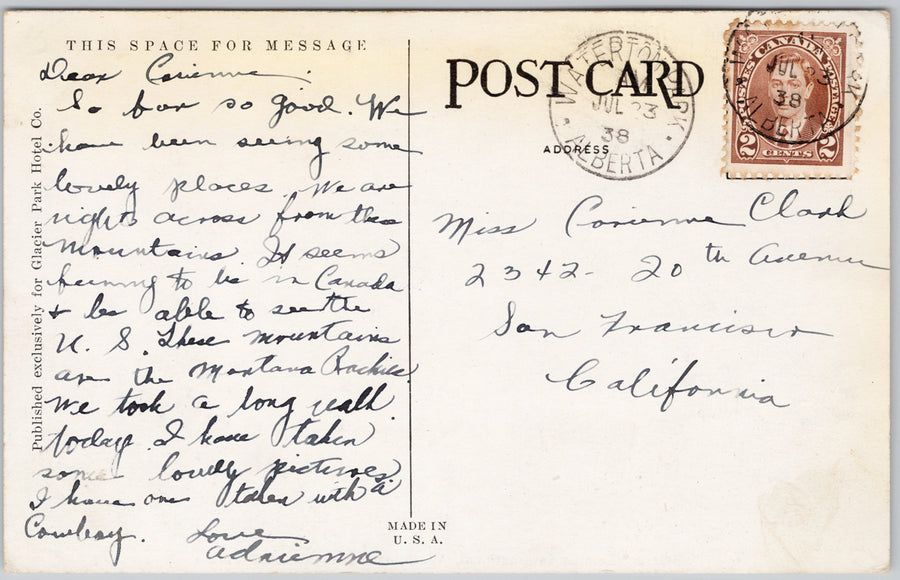 THIS SPACE FOR MESSAGE
Dear Corienne:
So far so good. We
have been seeing some
lovely places. We are
right across from the
mountains. It seems
funny to be in Canada
& be able to see the
U. S. These mountains
are the Montana Rockies.
We took a long walk
today. I have taken
some lovely pictures.
I have one taken with a
Cowboy. Love
Adrienne
Published exclusively for Glacier Park Hotel Co.
MADE IN
U. S. A.
POST CARD
ADDRESS
WATERTON PARK
JUL 23
38
ALBERTA
POSTES CANADA POSTAGE
2 CENTS 2
JUL 23
38
ALBERTA
Miss Corienne Clark
2342- 20th Avenue
San Francisco
California